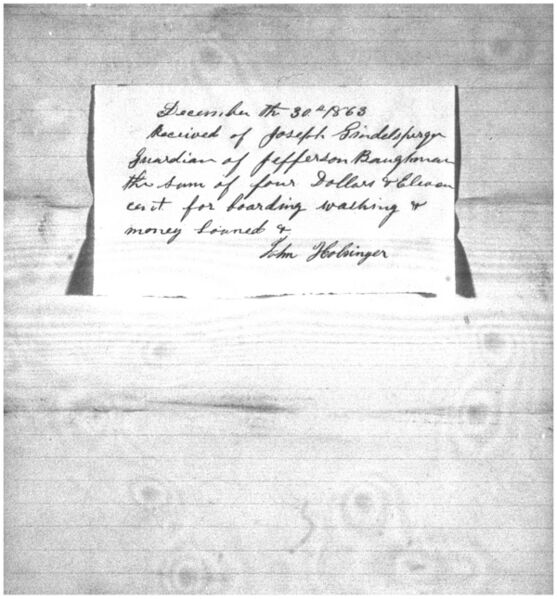 December th 30th 1863
Received of Joseph Gindelsperger
Guardian of Jefferson Baughman
the sum of four Dollars & Eleven
cent for boarding washing &
money loaned &
John Holsinger